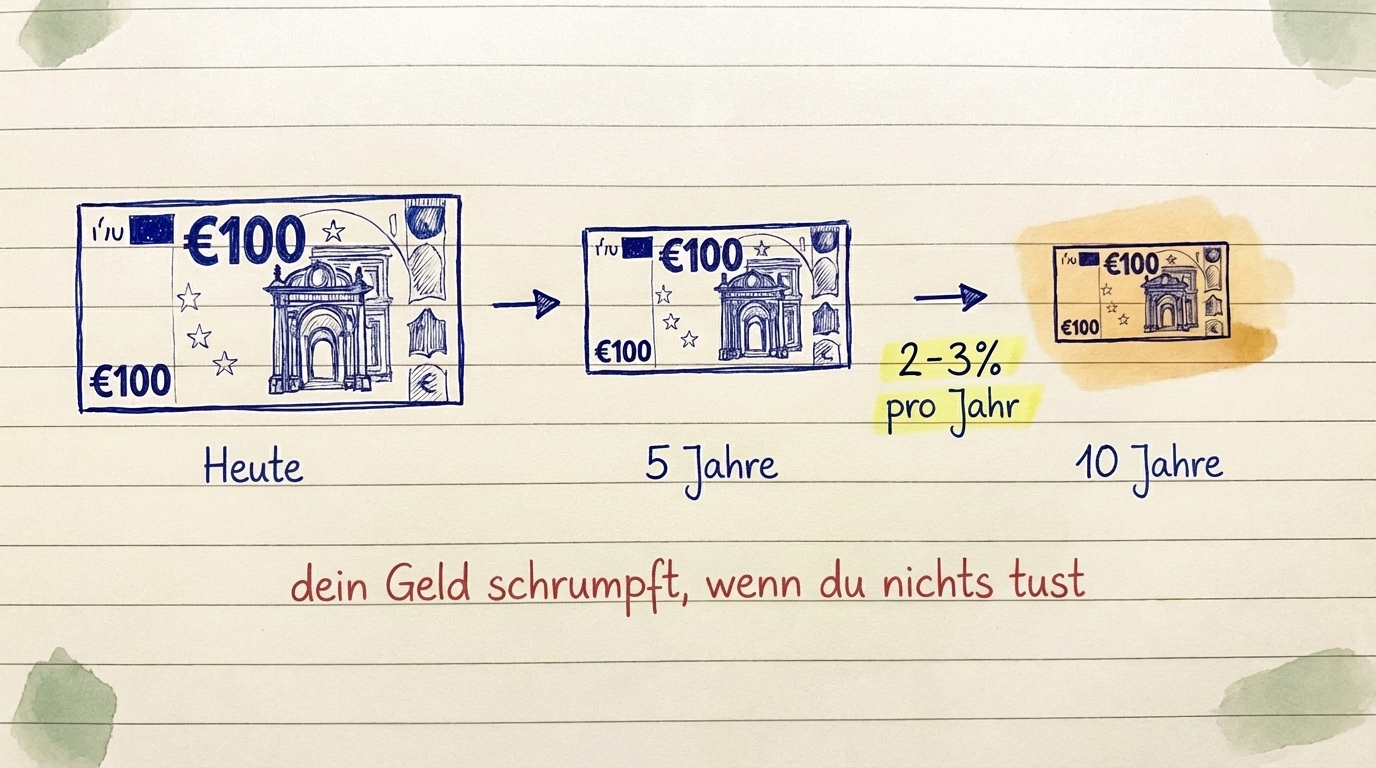 €100
€100
Heute
€100
€100
5 Jahre
2-3%
pro Jahr
€100
€100
10 Jahre
dein Geld schrumpft, wenn du nichts tust